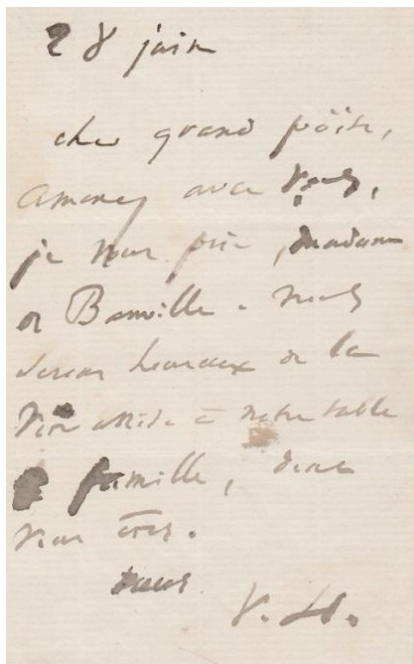 28 juin
cher grand poëte,
Amenez avec vous,
je vous prie, madame
de Banville. nous
serons heureux de la
voir assise à notre table
de famille, dont
vous êtes.
V. H.